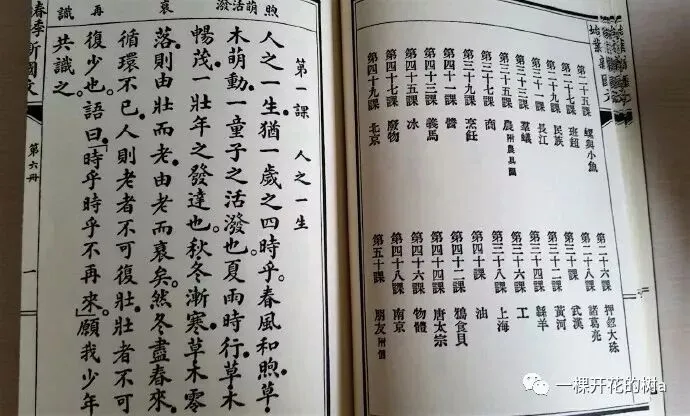 第二十五課 螺與小魚 第二十六課 押忽大珠
第二十七課 班超 第二十八課 諸葛亮
第二十九課 民族 第三十課 武漢
第三十一課 長江 第三十二課 黃河
第三十三課 群蟻 第三十四課 緜羊
第三十五課 農附農具圖 第三十六課 工
第三十七課 商 第三十八課 上海
第三十九課 烹飪 第四十課 油
第四十一課 第四十二課 鴉食貝
第四十三課 義馬 第四十四課 唐太宗
第四十五課 冰 第四十六課 物體
第四十七課 廢物 第四十八課 南京
第四十九課 北京 第五十課 朋友附信
煦 萌 活潑 衰 再 識
第一課 人之一生
人之一生。猶一歲之四時乎。春風和煦。草
木萌動。一童子之活潑也。夏雨時行。草木
暢茂。一壯年之發達也。秋冬漸寒。草木零
落。則由壯而老。由老而衰矣。然冬盡春來。
循環不已。人則老者不可復壯。壯者不可
復少也。語曰。「時乎時乎不再來。」願我少年
共識之。
春季新國文 第六冊 一
一棵开花的树a